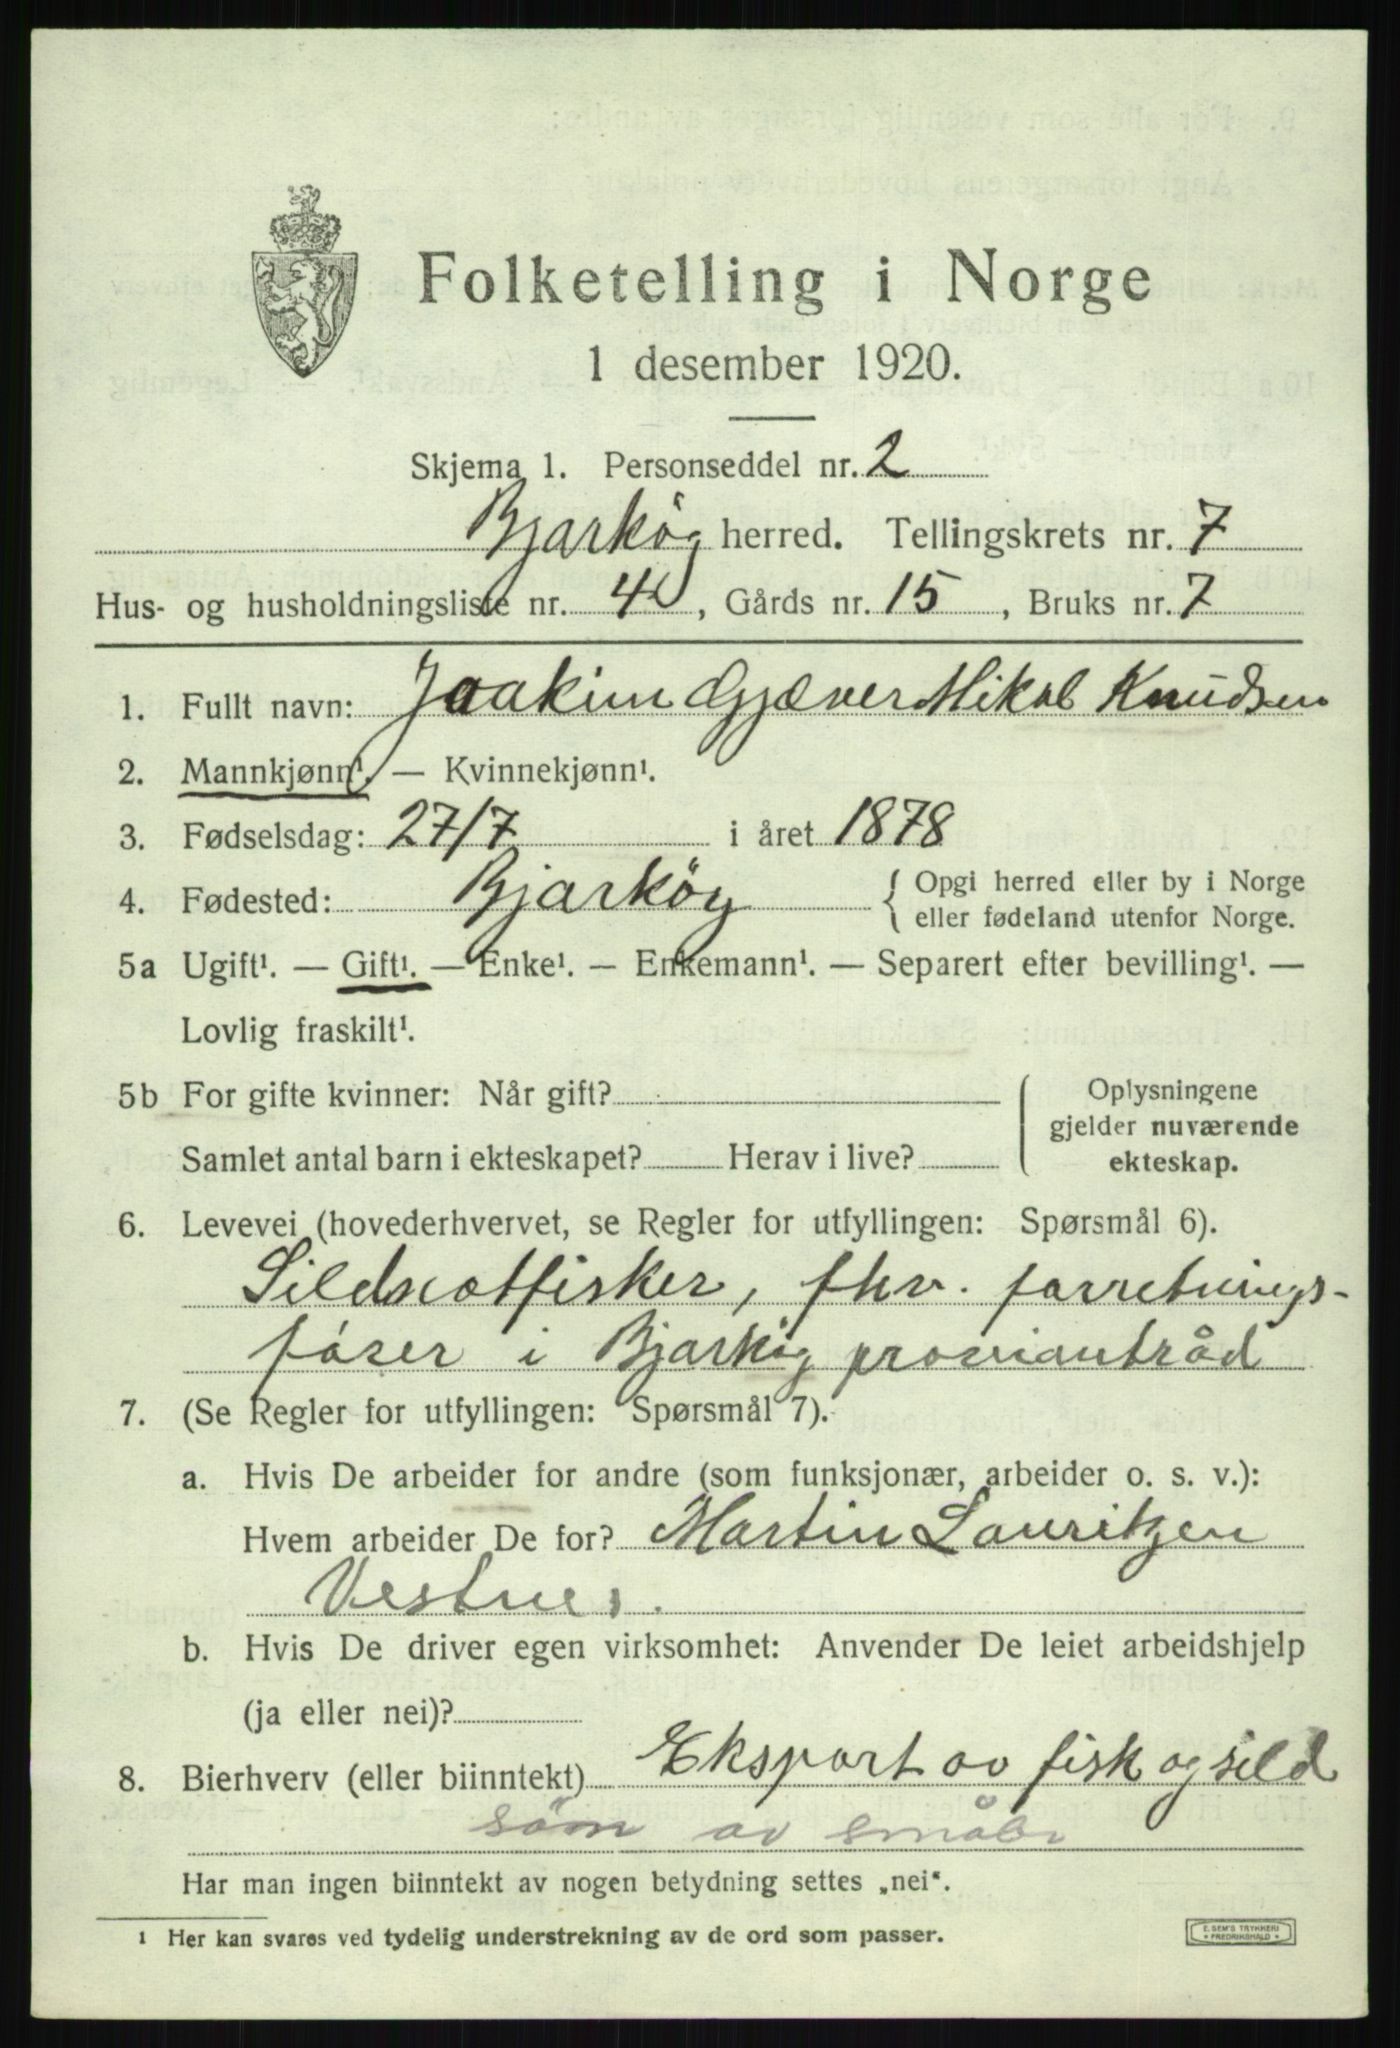 Folketelling i Norge
1 desember 1920.
Skjema 1. Personseddel nr. 2
Bjarkøy herred. Tellingskrets nr. 7
Hus- og husholdningsliste nr. 4, Gårds nr. 15, Bruks nr. 7
1. Fullt navn: Joakim Gjæver Mikal Knudsen
2. Mannkjønn¹. — Kvinnekjønn¹.
3. Fødselsdag: 27/7 i året 1878
4. Fødested: Bjarköy { Opgi herred eller by i Norge
eller fødeland utenfor Norge.
5a Ugift¹. — Gift¹. — Enke¹. — Enkemann¹. — Separert efter bevilling¹. —
Lovlig fraskilt¹.
5b For gifte kvinner: Når gift?
Samlet antal barn i ekteskapet? Herav i live?
Oplysningene
gjelder nuværende
ekteskap.
6. Levevei (hovederhvervet, se Regler for utfyllingen: Spørsmål 6).
Sildnotfisker, fhv. forretnings-
fører i Bjarköy proviantråd
7. (Se Regler for utfyllingen: Spørsmål 7).
a. Hvis De arbeider for andre (som funksjonær, arbeider o. s. v.):
Hvem arbeider De for? Martin Lauritzen
Vestnes.
b. Hvis De driver egen virksomhet: Anvender De leiet arbeidshjelp
(ja eller nei)?
8. Bierhverv (eller biinntekt) Eksport av fisk og sild
søm av
Har man ingen biinntekt av nogen betydning settes „nei".
¹ Her kan svares ved tydelig understrekning av de ord som passer.
E. SEM'S TRYKKERI
FREDRIKSHALD